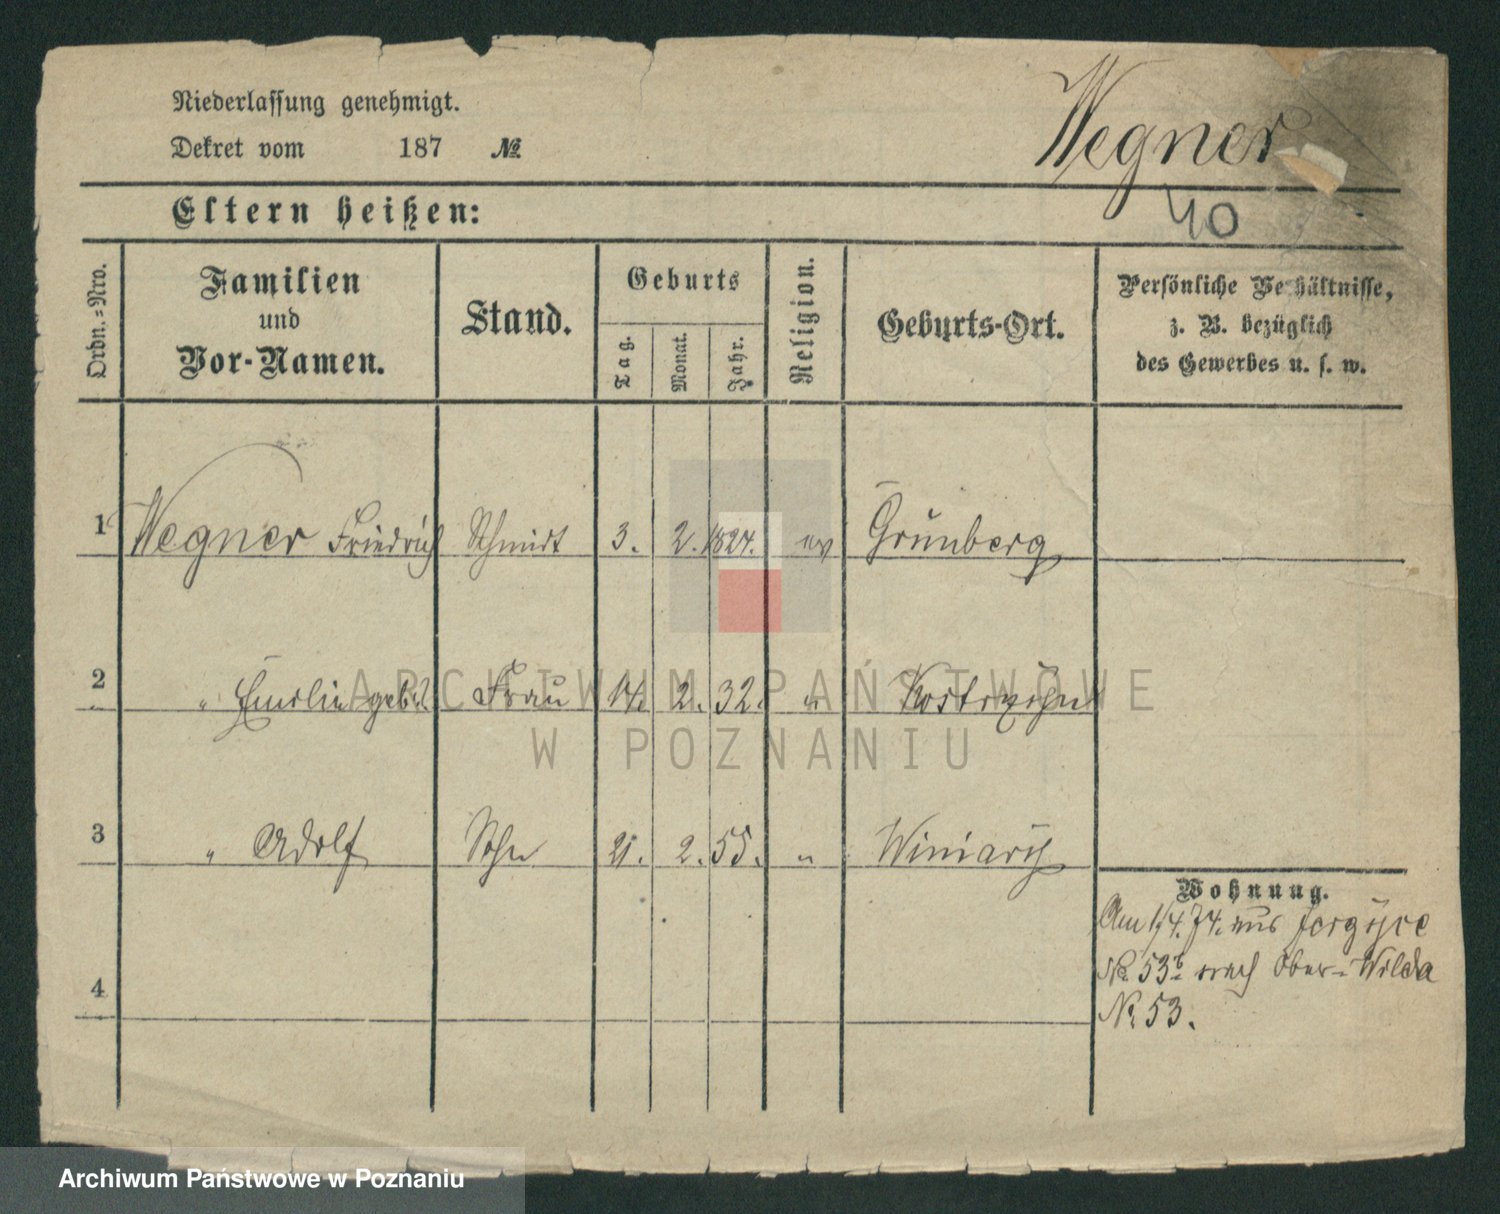 Niederlassung genehmigt.
Dekret vom 187 №
Wegner
40
Eltern heißen:
Ordn.=Nro.
Familien
und
Vor-Namen.
Stand.
Geburts
Tag.
Monat.
Jahr.
Religion.
Geburts-Ort.
Persönliche Verhältnisse,
z. B. bezüglich
des Gewerbes u. s. w.
1 Wegner Friedrich Schmidt 3. 2. 1824. ev Grünberg
2 " Emilie geb. Frau 14. 2. 32. "
3 " Adolf Sohn 21. 2. 55. " Winiary
Wohnung.
Am 1/4. 74. aus
No 53b nach Ober-Wilda
No 53.
4
ARCHIWUM PAŃSTWOWE
W POZNANIU
Archiwum Państwowe w Poznaniu